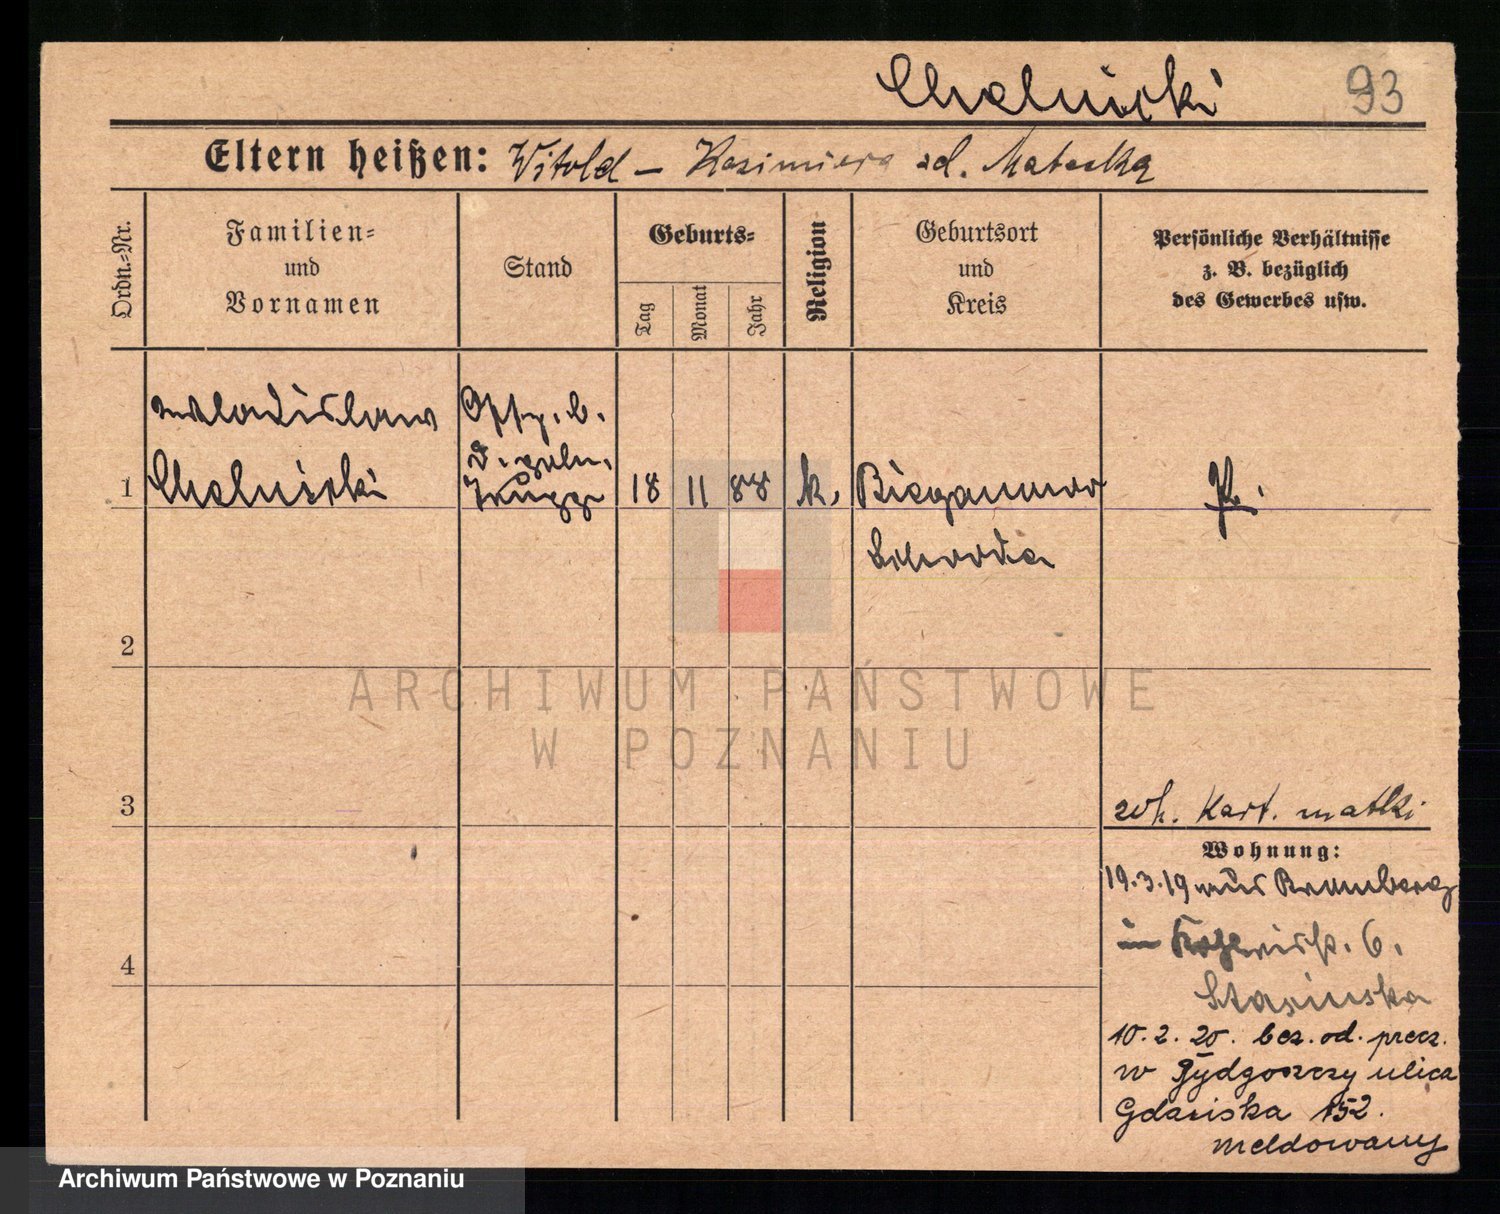 Chelmicki 93
Eltern heißen: Witold – Kazimiera zd. Matecka
Ordn.-Nr.
Familien-
und
Vornamen
Stand
Geburts-
Tag
Monat
Jahr
Religion
Geburtsort
und
Kreis
Persönliche Verhältnisse
z. B. bezüglich
des Gewerbes usw.
Wladislaus
1 Chelmicki 18 11 88 k. Bieganowo
Schroda
2
3
zob. Kart. matki
Wohnung:
19.3.19 aus Bromberg
4
6.
10. 2. 20. bez. od. przecz.
w Bydgoszczy ulica
Gdańska 152.
meldowany
ARCHIWUM PAŃSTWOWE
W POZNANIU
Archiwum Państwowe w Poznaniu